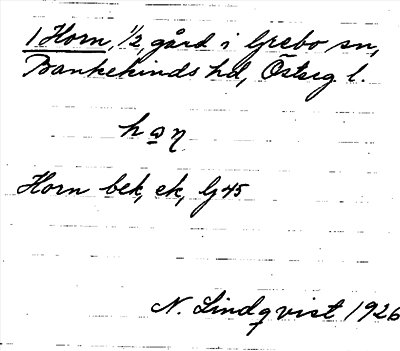 1 Horn, 1/2 gård i Grebo sn,
Bankekinds hd, Östерg l.
Horn bek, ek, lj 45
N. Lindqvist 1926